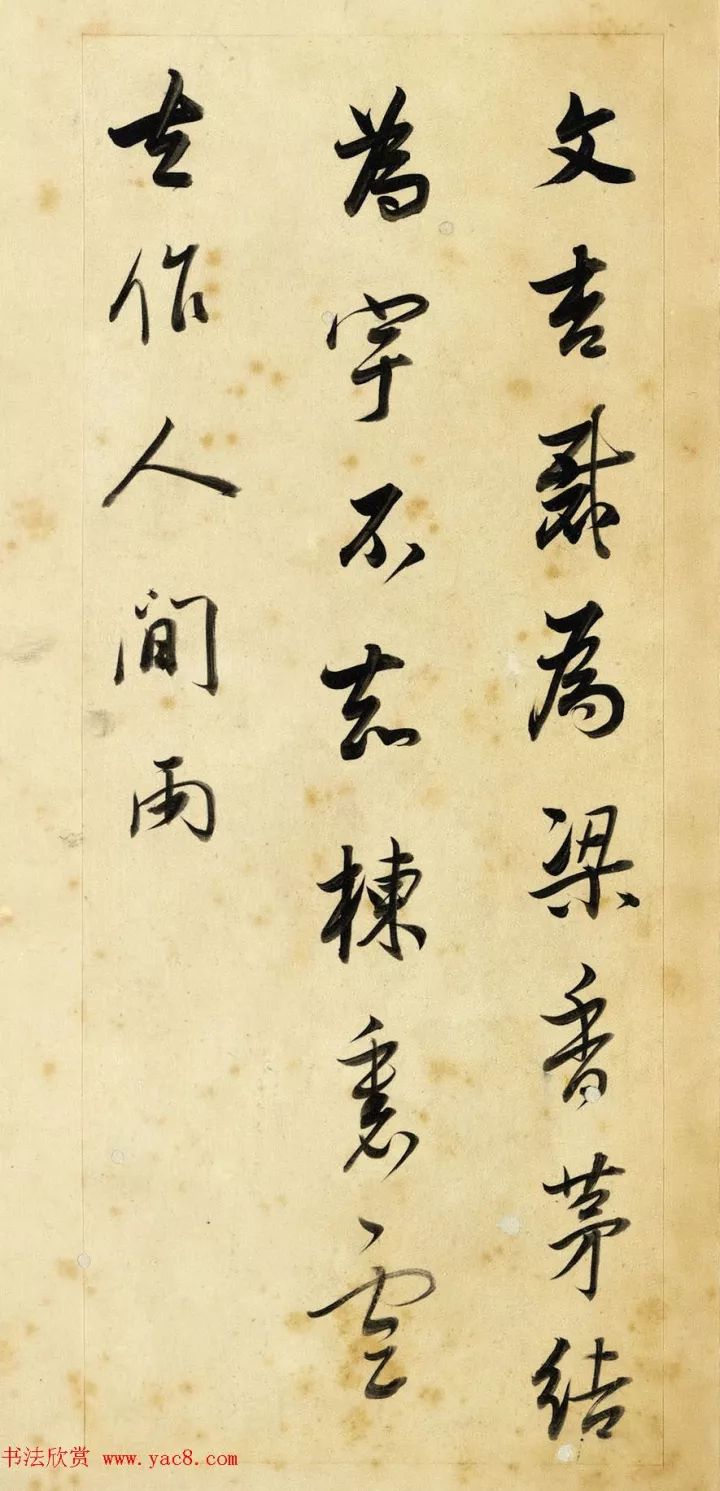 文杏裁為梁香茅結
為宇不知棟裏雲
去作人間雨
书法欣赏 www.yac8.com